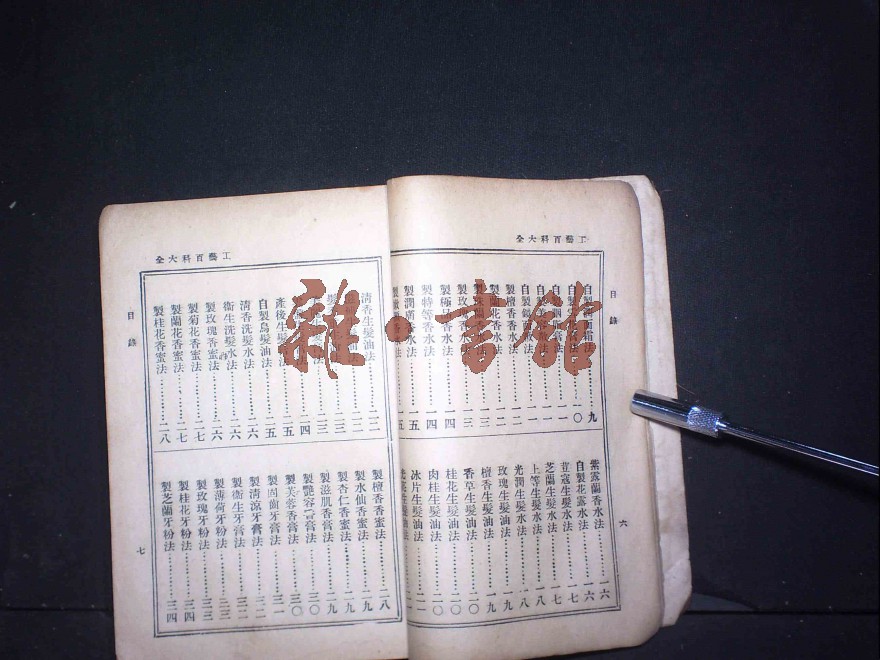 工藝百科大全
目錄
自製霜法……九
自製法……一〇
自製法……一一
自製法……一一
自製法……一二
製檀香香水法……一二
製蘭花香水法……一三
製珠蘭香水法……一三
製玫香水法
製極香水法……一四
製特等香水法……一四
製潤膚香水法……一五
製法……一五
紫露蘭香水法……一六
自製花露水法……一六
荳蔻生髮水法……一七
芝蘭生髮水法……一七
上等生髮水法……一八
光潤生髮水法……一八
玫瑰生髮油法……一九
檀香生髮油法……一九
香草生髮油法……二〇
桂花生髮油法……二〇
肉桂生髮油法……二〇
冰片生髮油法……二一
生髮油法
六
工藝百科大全
目錄
清香生髮油法……二二
法……二二
法……二三
髮法……二三
法……二四
產後生髮法……二五
自製烏髮油法……二五
清香洗髮水法……二六
衞生洗髮水法……二六
製玫瑰香蜜法……二六
製菊花香蜜法……二七
製蘭花香蜜法……二七
製桂花香蜜法……二八
製檀香香蜜法……二八
製水仙香蜜法……二九
製杏仁香蜜法……二九
製滋肌香膏法……二九
製艷容香膏法……三〇
製芙蓉香膏法……三〇
製固齒牙膏法……三一
製清涼牙膏法……三二
製衞生牙膏法……三二
製薄荷牙粉法……三三
製玫瑰牙粉法……三三
製桂花牙粉法……三四
製芝蘭牙粉法……三四
七
雜·书馆